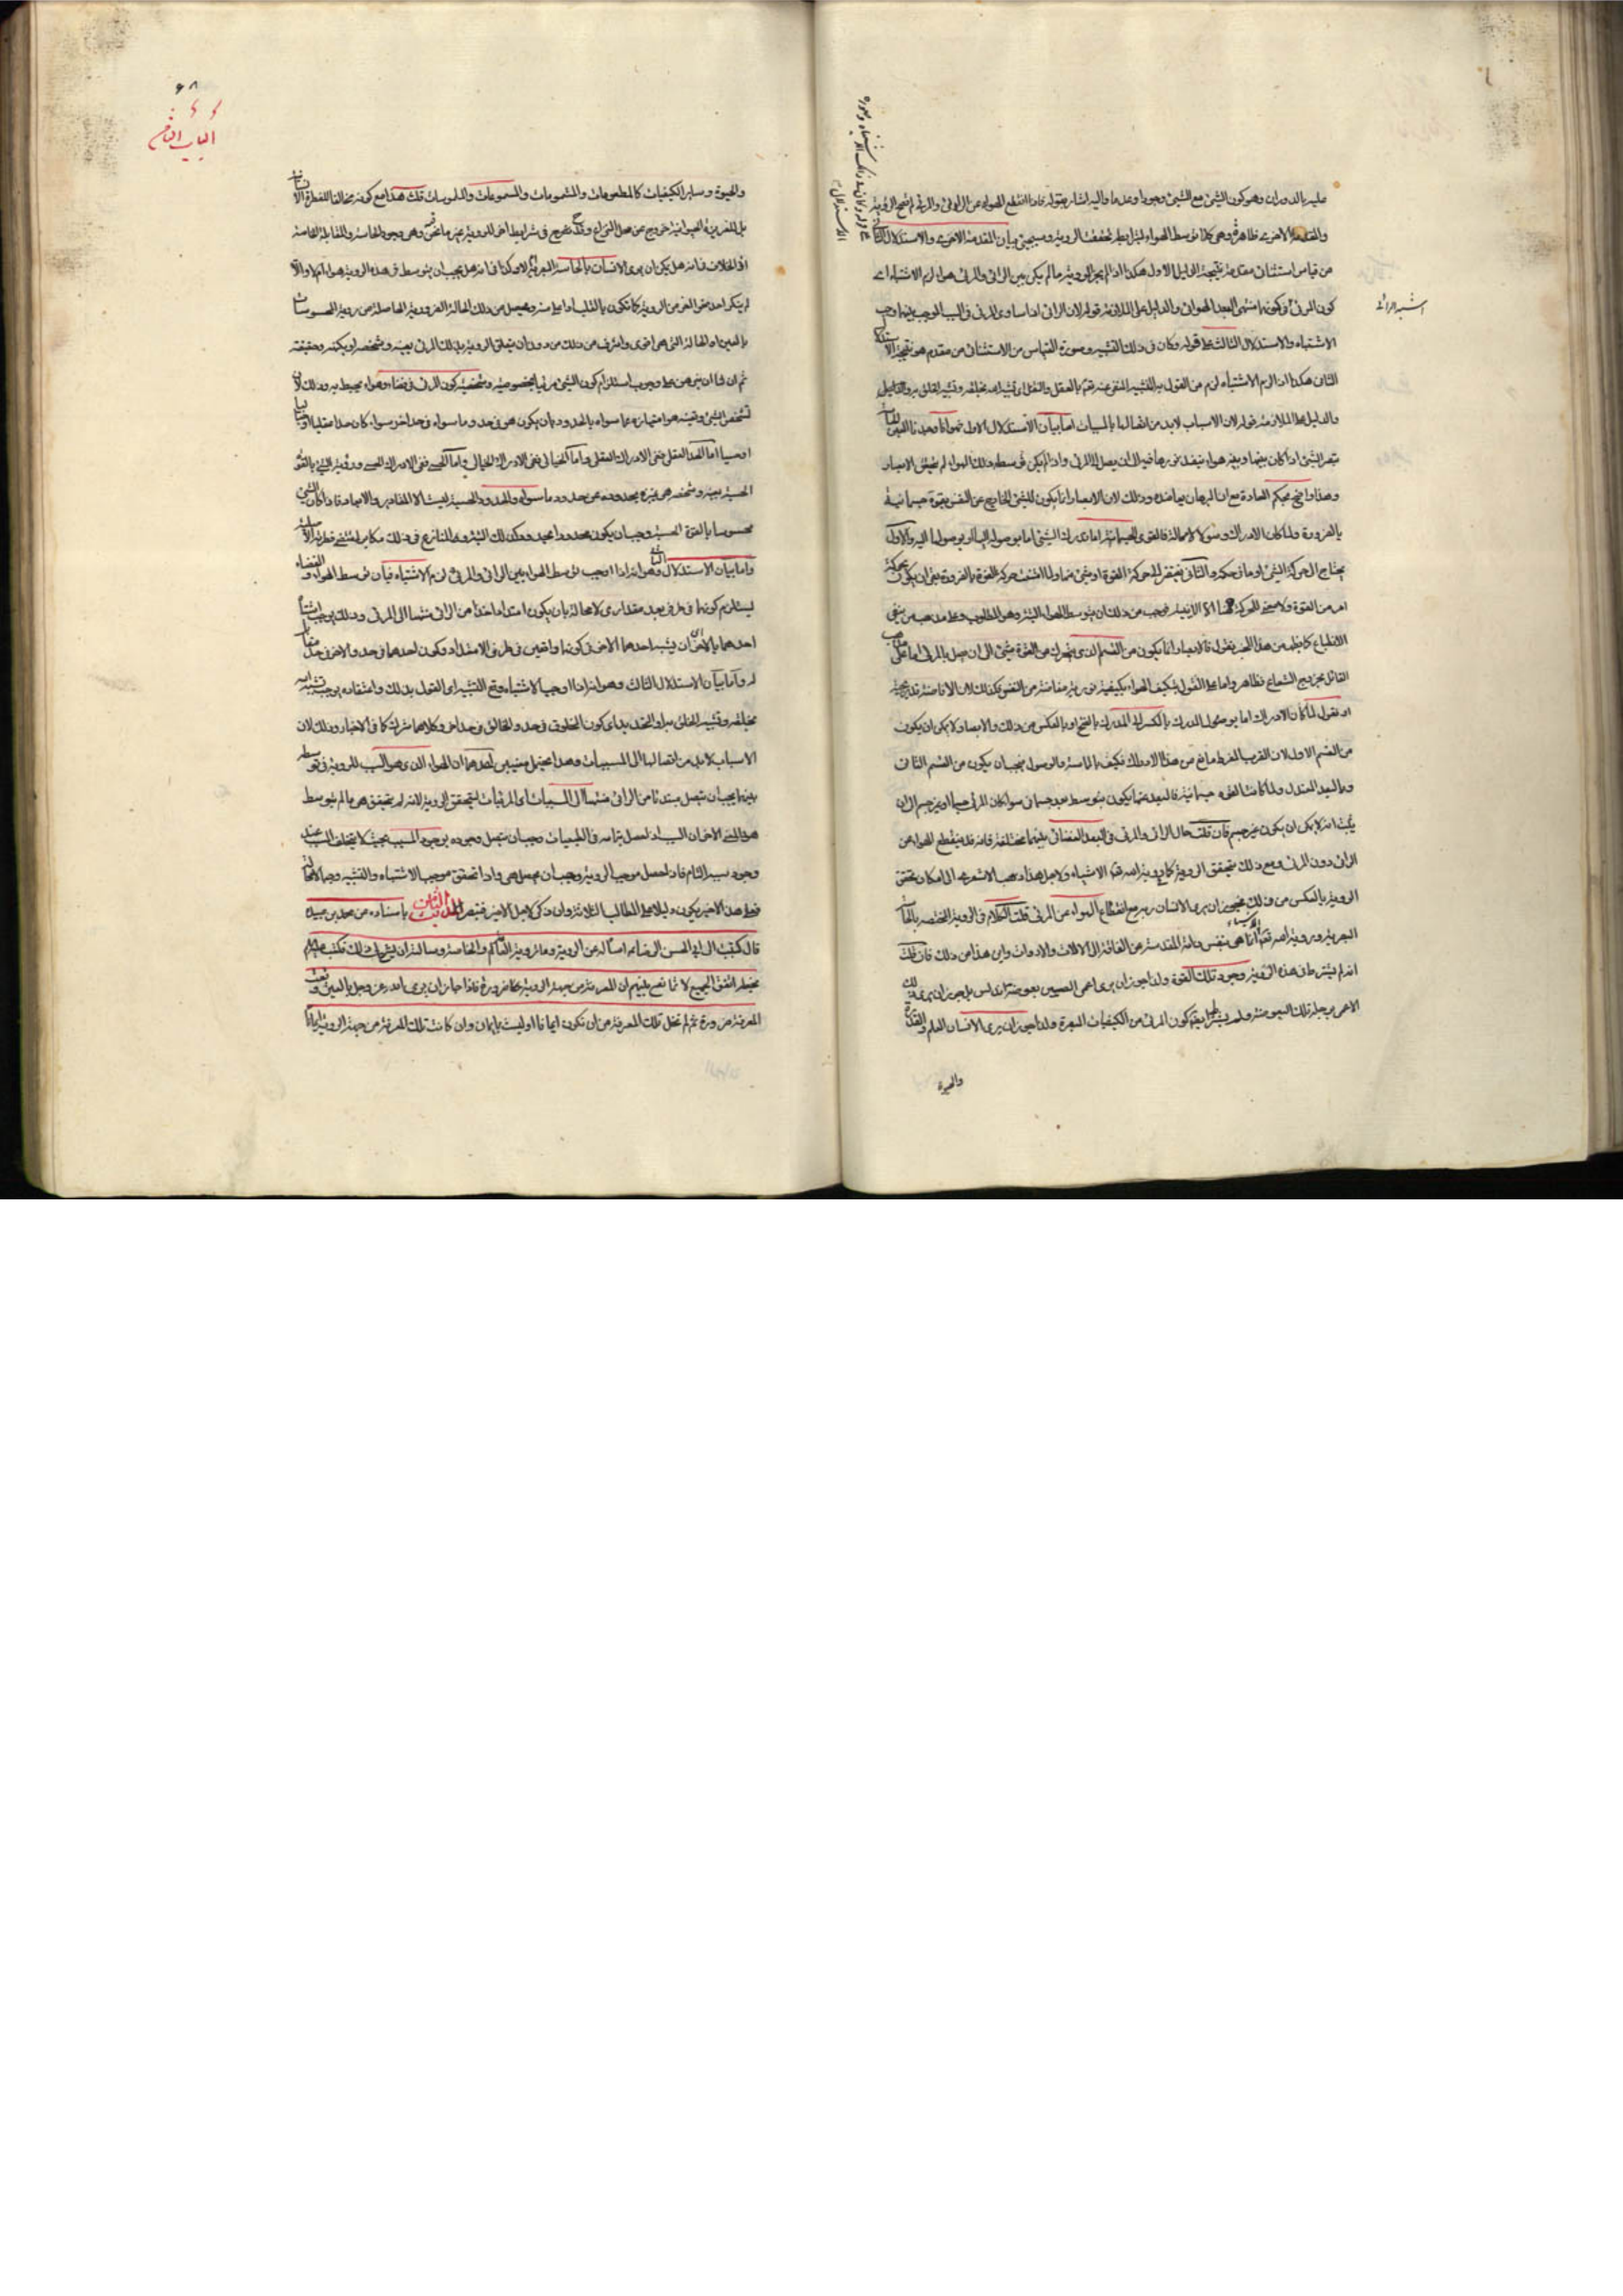 عليه بالدوران وهو كون الشئ مع الشئ وجودا وعدما واليه اشار بقوله فاذا انقطع الهواء عن الرائى والمرئى لم تصح الرؤية
والمقدمة الاخرى ظاهرة وهى كلما توسط الهواء تحققت الروية وسيجئ بيان المقدمة الاخرى والاستدلال الثانى
من قياس استثنائى مقدمة نتيجة الدليل الاول هكذا اذا لم يجز الروية ما لم يكن بين الرائى والمرئى هواء لزم الاشتباه اى
كون المرئى فى كونهما منتهى البعد الهوائى والدليل على الملازمة قوله لان الرائى اذا ساوى المرئى فى السبب الموجب بينهما وجب
الاشتباه والاستدلال الثالث على قوله وكان فى ذلك التشبيه وصورة القياس من الاستثنائى من مقدم هو نتيجة الاستدلال
الثانى هكذا اذا لزم الاشتباه لزم من القول به التشبيه المنفى عنه تعالى بالعقل والنقل اى تشبيه الله بخلقه
والدليل على الملازمة قوله لان الاسباب لابد من اتصالها بالمسببات اما بيان الاستدلال الاول فهو انا وجدنا النفس انما
تبصر الشئ اذا كان بينهما وبينه هواء ينفذ نورها فيه الى ان يصل الى المرئى واذا لم يكن فى وسطه ذلك الهواء لم يتيسر الابصار
وهذا واضح بحكم العادة مع ان البرهان يعاضده وذلك لان الابصار انما يكون للشئ الخارج عن النفس بقوة جسمانية
بالضرورة ولما كان الادراك وصولا لا محالة فالقوى الجسمانية اما ان يدرك الشئ اما بوصوله اليها او بوصولها اليه والاول
يحتاج الى حركة الشئ او ما فى حكمه والثانى يفتقر الى حركة القوة او شئ منها ولما انتفت حركة القوة بالضرورة بقى ان يكون بحركة
امر من القوة
الانطباع كما يظهر من هذا الخبر نقول فالابصار انما يكون من القسم الذى يتحرك من القوة شئ الى ان يصل بالمرئى اما على مذهب
القائل بخروج الشعاع فظاهر واما على القول بتكيف الهواء بكيفية نورية مفاضة من النفس فكذلك لان الافاضة
او نقول لما كان الادراك اما بوصول المدرك بالكسر الى المدرك بالفتح او بالعكس من ذلك والابصار لا يمكن ان يكون
من القسم الاول لان القرب المفرط مانع من هذا الادراك فكيف بالماسة والوصول فيجب ان يكون من القسم الثانى
وبالبعد المعتدل ولما كانت القوى جسمانية فالبعد عنها يكون بتوسط بعد جسمانى سواء كان المرئى جسما او غير جسم الى ان
يثبت انه لا يمكن ان يكون غير جسم فان قلت حال الرائى والمرئى فى البعد الفضائى بينهما مختلفة فانه قد ينقطع الهواء من
الرائى دون المرئى ومع ذلك يتحقق الروية كما فى روية الله تعالى الاشياء ولاجل هذا ذهب الاشعرى الى امكان تحقق
الروية بالعكس من ذلك فيجوز ان يرى الانسان ربه مع انقطاع الهواء عن المرئى قلت الكلام فى الروية المختصة بالحاسة
البصرية وروية الله تعالى الاشياء انما هى بنفس ذاته المقدسة عن الفاقة الى الالات والادوات واين هذا من ذلك فان قلت
انه لم يشترط فى هذه الرؤية وجود تلك القوة ولذا جوز ان يرى اعمى الصين بعوضة اندلس بل جوز ان يرى ذلك
الاعمى برجله تلك البعوضة ولم يشترط ايضا كون المرئى من الكيفيات المبصرة ولذا جوز ان يرى الانسان العلم والقدرة
والحيوة
اشبه الرائى
الاستدلال
٦٨
الباب الثامن
والحيوة وساير الكيفيات كالمطعومات والمشمومات والمسموعات والملموسات قلت هذا مع كونه مخالفا للفطرة الانسانية
بل للغريزة الحيوانية خروج عن محل النزاع وقدح فى شرايط اخر للروية غير ما نحن فيه وهى وجود الحاسة والمقابلة الخاصة
اذ الخلاف فى انه هل يمكن ان يرى الانسان بالحاسة البصرية ام لا وكذا فى انه هل يجب ان يتوسط فى هذه الروية هواء ام لا والا
لم ينكر احد هذا النحو من الروية كما تكون بالقلب او اعلى منه ويحصل من ذلك الحالة الضرورية الحاصلة من روية المحسوسات
بالعين او الحالة التى هى اقوى واشرف من ذلك من دون ان يتعلق الروية بذلك المرئى بعينه وشخصه او بكنهه وحقيقته
ثم ان لنا ان نبرهن على وجوب استلزام كون الشئ مرئيا بخصوصيته وشخصيته كون المرئى فى فضاء وهواء يحيط به وذلك لان
تشخص الشئ وتعينه هو امتيازه عما سواه بالحدود بان يكون هو فى حد وما سواه فى حد اخر سواء كان حدا عقليا او خياليا
او حسيا اما الحد العقلى ففى الادراك العقلى واما الخيالى ففى الادراك الخيالى واما الحسى ففى الادراك الحسى وروية الشئ بالقوة
الحسية بعينه وشخصه هى تميزه بحدوده عن حدود ما سواه والحدود الحسية ليست الا المقادير والابعاد فاذا كان الشئ
محسوسا بالقوة الحسية وجب ان يكون محدودا بحدود كذلك البتة والمنازع فى ذلك مكابر لمقتضى فطرته الاصلية
واما بيان الاستدلال الثانى فهو انه اذا اوجب توسط الهواء بين الرائى والمرئى لزم الاشتباه فبان توسط الهواء والفضاء
ليستلزم كونهما فى طرفى بعد مقدارى لا محالة بان يكون امتدادا اخذا من الرائى منتهيا الى المرئى وذلك يوجب اشتباه
احدهما بالاخر اى ان يشبه احدهما الاخر فى كونهما واقعين فى طرفى الامتداد وكون احدهما فى حد والاخر فى حد مقابل
له واما بيان الاستدلال الثالث وهو انه اذا اوجب الاشتباه وقع التشبيه اى القول بذلك واعتقاده يوجب تشبيه الله
بخلقه وتشبيه الخلق به او التحديد اى كون المخلوق فى حد والخالق فى حد اخر وكلاهما شرك كما فى الاخبار وذلك لان
الاسباب لابد من اتصالها الى المسببات وهذا يحتمل معنيين احدهما ان الهواء الذى هو السبب للروية فى توسطه
بينهما يجب ان يتصل مبتدئا من الرائى منتهيا الى المسببات اى المرئيات ليتحقق الروية لانه لم يتحقق هى ما لم يتوسط
هو المعنى الاخر ان السبب اذا حصل بتمامه فى الطبيعيات وجب ان يتصل وجوده بوجود المسبب بحيث لا يتخلف المسبب عند
وجود سببه التام فاذا حصل موجب الروية وجب ان يحصل هى واذا تحقق موجب الاشتباه والتشبيه وجبا لا محالة
فعلى هذا الاخير يكون دليلا على المطالب الثلاثة وان ذكر لاجل الاخير فتبصر الحديث الثامن باسناده عن محمد بن عبيدة
قال كتبت الى ابى الحسن الرضا ع اسأله عن الروية وما ترويه العامة والخاصة وسالته ان يشرح لى ذلك فكتب ع
بخطه اتفق الجميع لا تمانع بينهم ان المعرفة من جهة الروية ضرورة فاذا جاز ان يرى الله عز وجل بالعين وقعت
المعرفة ضرورة ثم لم تخل تلك المعرفة من ان تكون ايمانا او ليست بايمان وان كانت تلك المعرفة من جهة الروية ايمانا